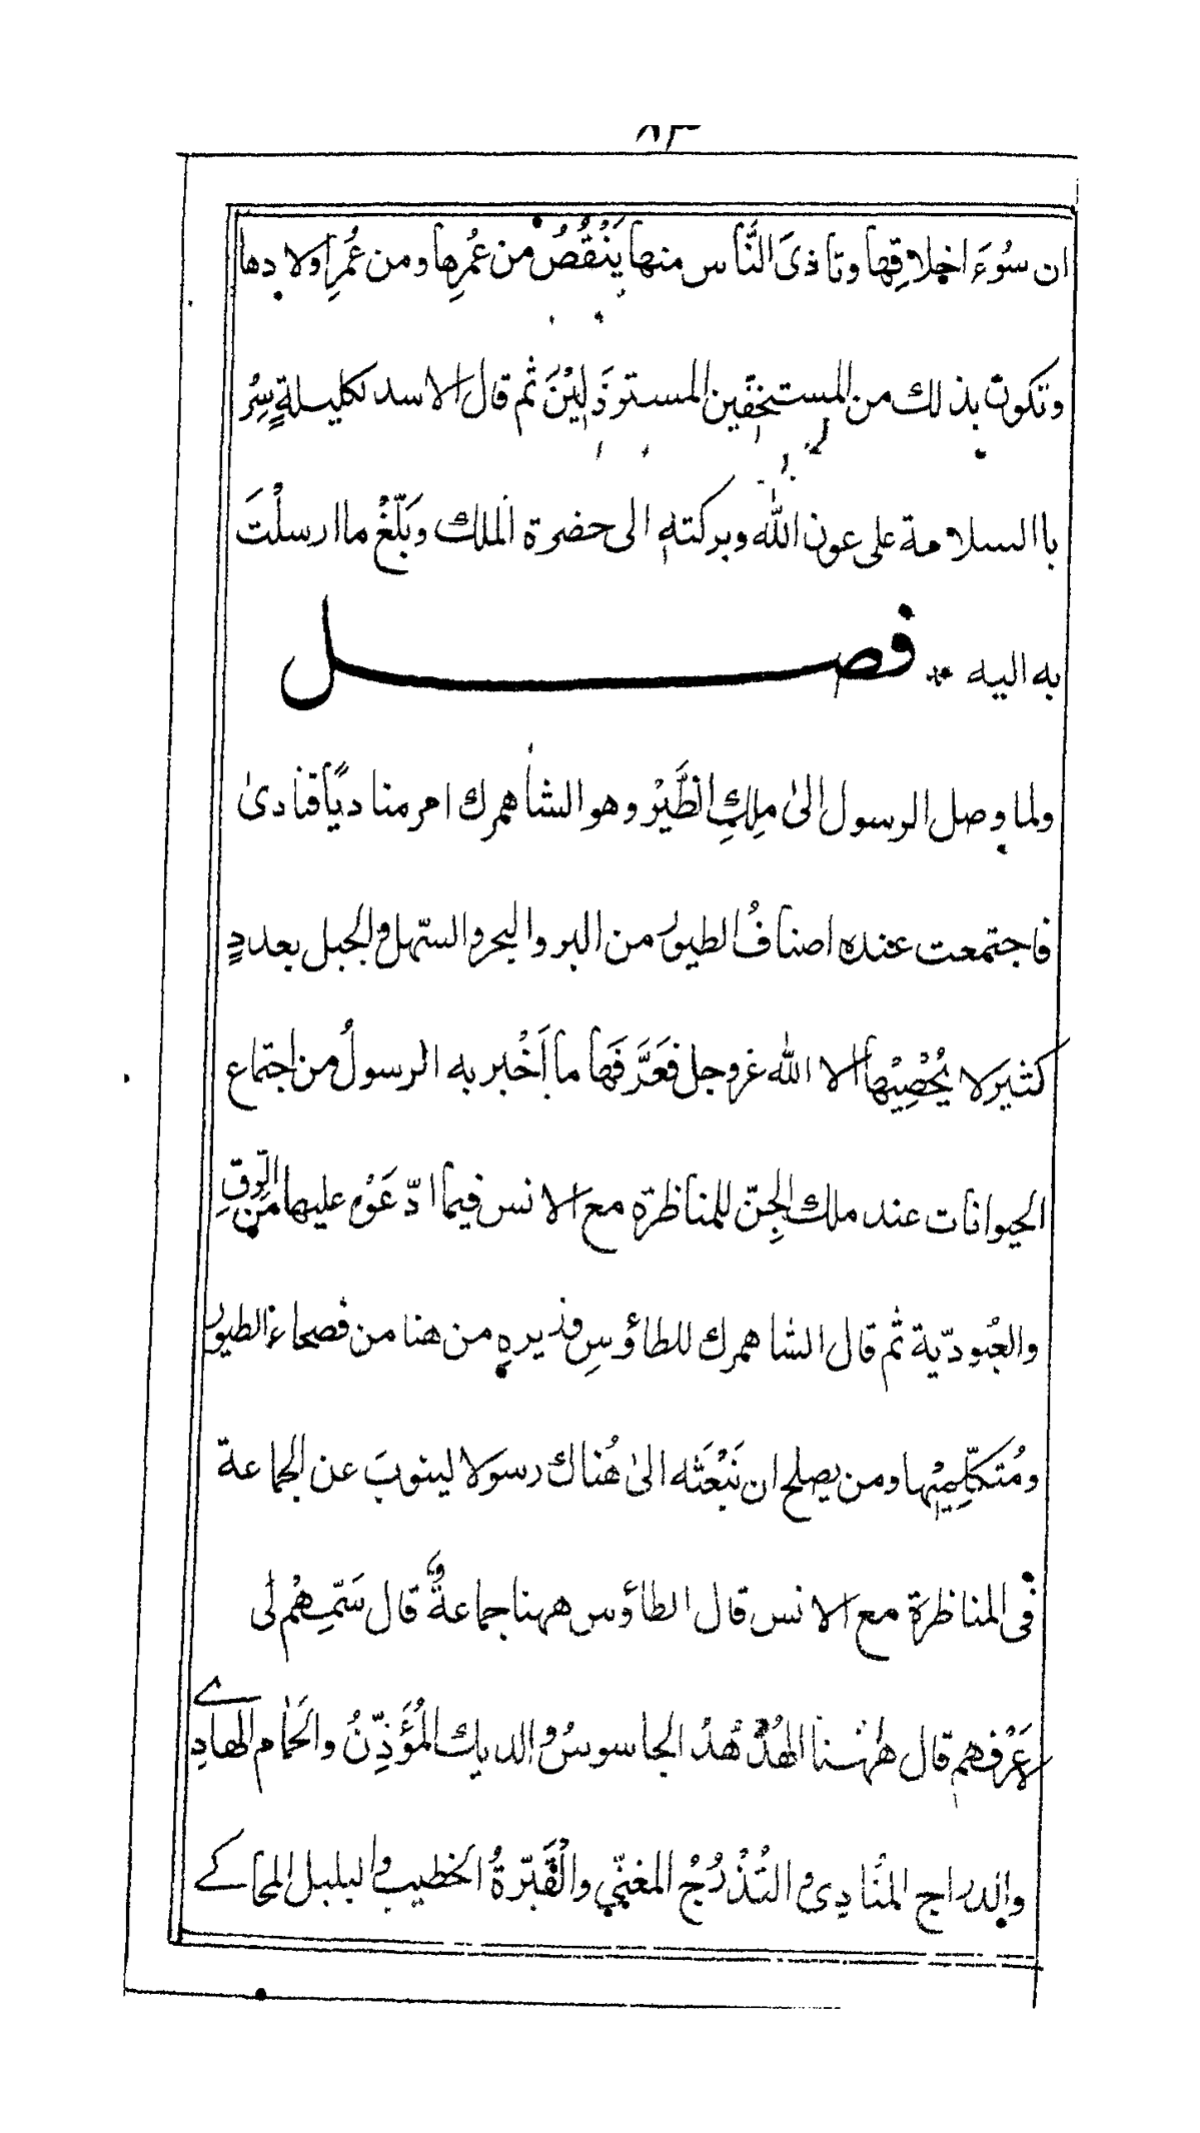 ٨٣
ان سُوْءَ اخلاقِها وتاذىَ النَّاس منها يَنْقُصُ من عُمرِها ومن عُمرِ اولادها
وتكون بذلك من المستخفّين المسترذَلِيْنَ ثم قال الاسد لكليلةٍ سِرْ
باالسلامة على عون الله وبركته الى حضرة الملك وبَلّغْ ما ارسلْتَ
به اليه * فصل
ولما وصل الرسول الىٰ ملِكِ الطَّيْر وهو الشاهمرك امر مناديًا فنادىٰ
فاجتمعت عنده اصنافُ الطيور من البر والبحر والسّهل والجبل بعددٍ
كثير لا يُحْصِيْها الا الله عز وجل فعَرَّفَها ما اَخْبر به الرسولُ من اجتماع
الحيوانات عند ملك الجِنّ للمناظرة مع الانس فيما ادّعَوْه عليها من الرّقِ
والعُبوديّة ثم قال الشاهمرك للطاؤسِ وزيرهِ من هنا من فصحاء الطيور
ومُتكلّمِيْها ومن يصلح ان نَبْعَثَه الىٰ هُناك رسولا لينوبَ عن الجماعة
فى المناظرة مع الانس قال الطاؤس ههنا جماعةٌ قال سَمّهِمْ لى
لاعَرْفهم قال هٰهُنا الهُدْهُدُ الجاسوسُ والديك المُؤَذّنُ والحَمام الهادي
والدراج المُنَادِىْ والتُذْرُجُ المغنّي والقُبّرةُ الخطيب والبلبل المحاكے